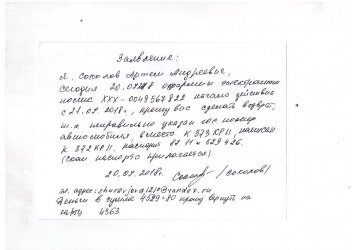 Заявление:
Я, Соколов Артем Андреевич,
сегодня 20.07.18 оформлен электронный
полис ХХХ-0049567822 начало действия
с 21.07.2018г., прошу вас сделать возврат,
т.к неправильно указан гос номер
автомобиля, вместо К 373 КР 11, написан
К 372 КР 11. паспорт 87 11 н 529426.
(скан паспорта прилагается)
20.07.2018г. /Соколов/
эл. адрес: zhuravjova1210@yandex.ru,
Деньги в сумме 4589=80 прошу вернуть на
карту 4363